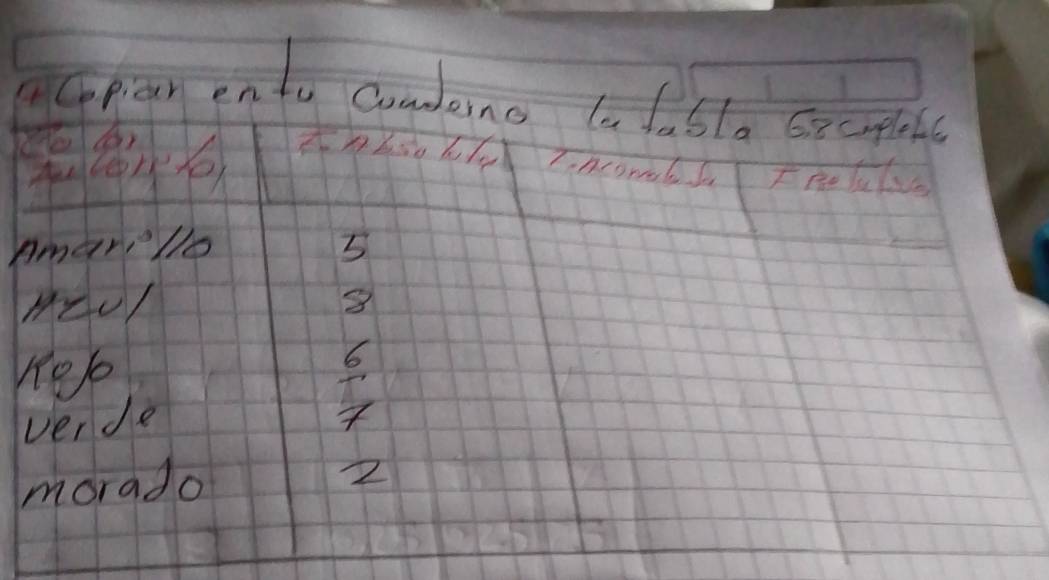 Copiar en tu Cuaderno la tabla
Color
F. Absoluta F. Acomulada F Relativa
Amarillo 5
Azul 8
Rojo 6
verde 7
morado 2